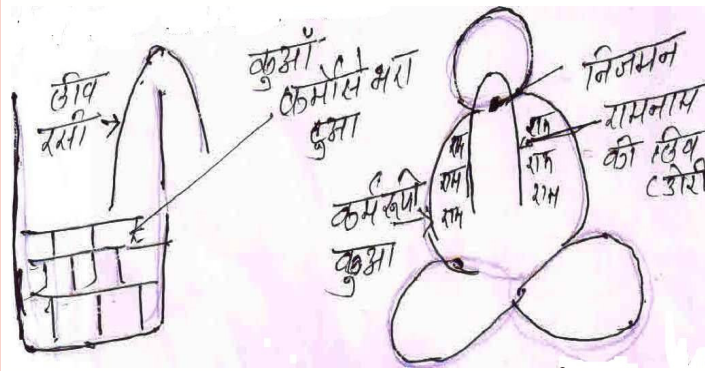 लीव
रसी
कुआँ
कर्मोसे भरा
हुआ
निजमन
रामनाम
की लीव
(डोरी
राम
राम
राम
राम
राम
राम
कर्मरूपी
कुआ